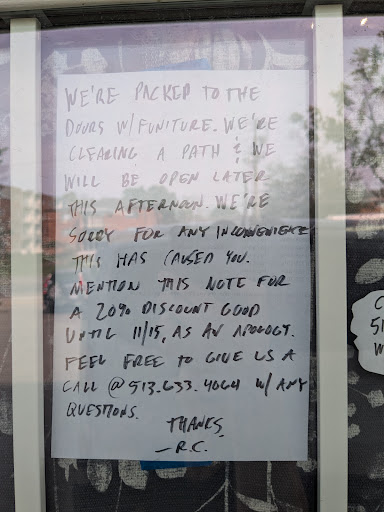 WE'RE PACKED TO THE
DOORS W/ FUNITURE. WE'RE
CLEARING A PATH & WE
WILL BE OPEN LATER
THIS AFTERNOON. WE'RE
SORRY FOR ANY INCONVENIENCE
THIS HAS CAUSED YOU.
MENTION THIS NOTE FOR
A 20% DISCOUNT GOOD
UNTIL 11/15, AS AN APOLOGY.
FEEL FREE TO GIVE US A
CALL @ 513.633.4064 W/ ANY
QUESTIONS.
THANKS,
-R.C.